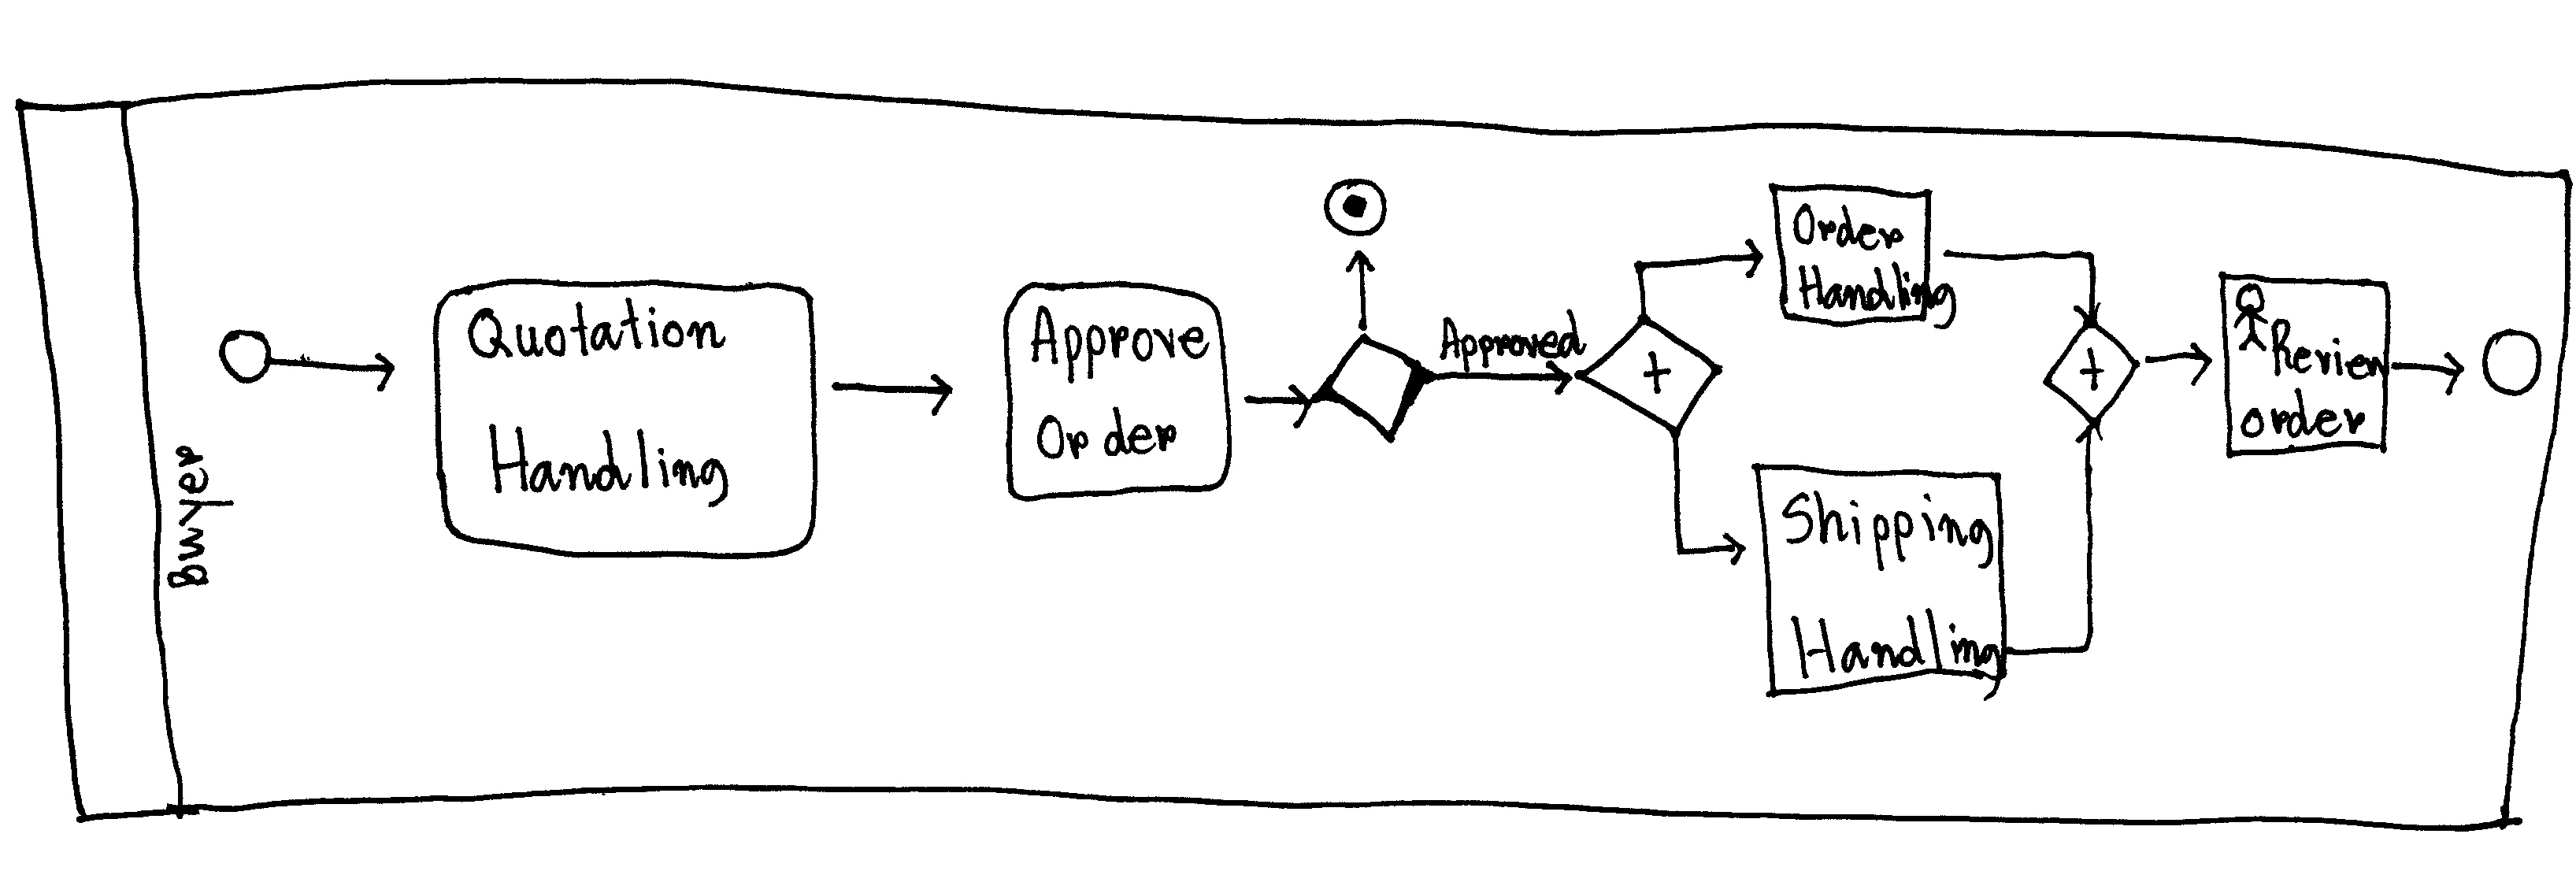 Buyer
Quotation
Handling
Approve
Order
Approved
+
Order
Handling
Shipping
Handling
+
Review
order